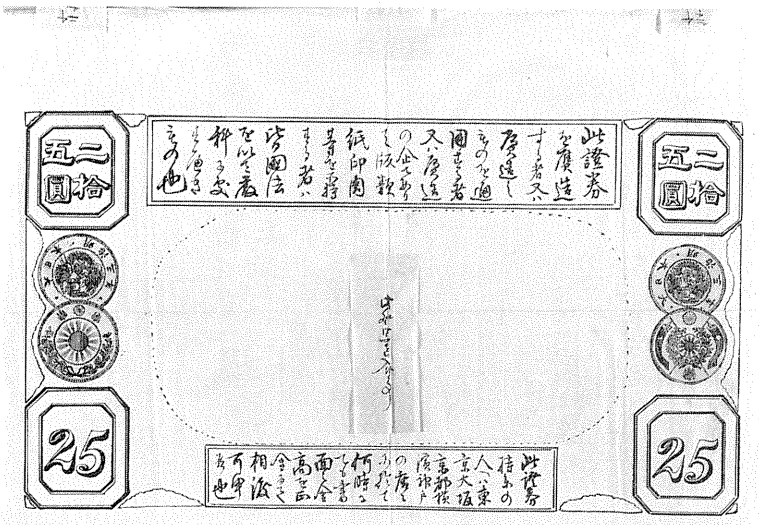 二拾
五圓
此證券
を贋造
する者又ハ
贋造之
ものを通
用する者
又ハ贋造
の企てあり
て版類
紙印閲
等を所持
する者ハ
皆國法
を以て嚴
科に處
すへき
もの也
二拾
五圓
25
25
此證券
持参の
人へハ東
京大坂
京都横
濱神戸
の店々
に於て
何時
ても書
面之金
高を正
金にて
相渡
可申
者也